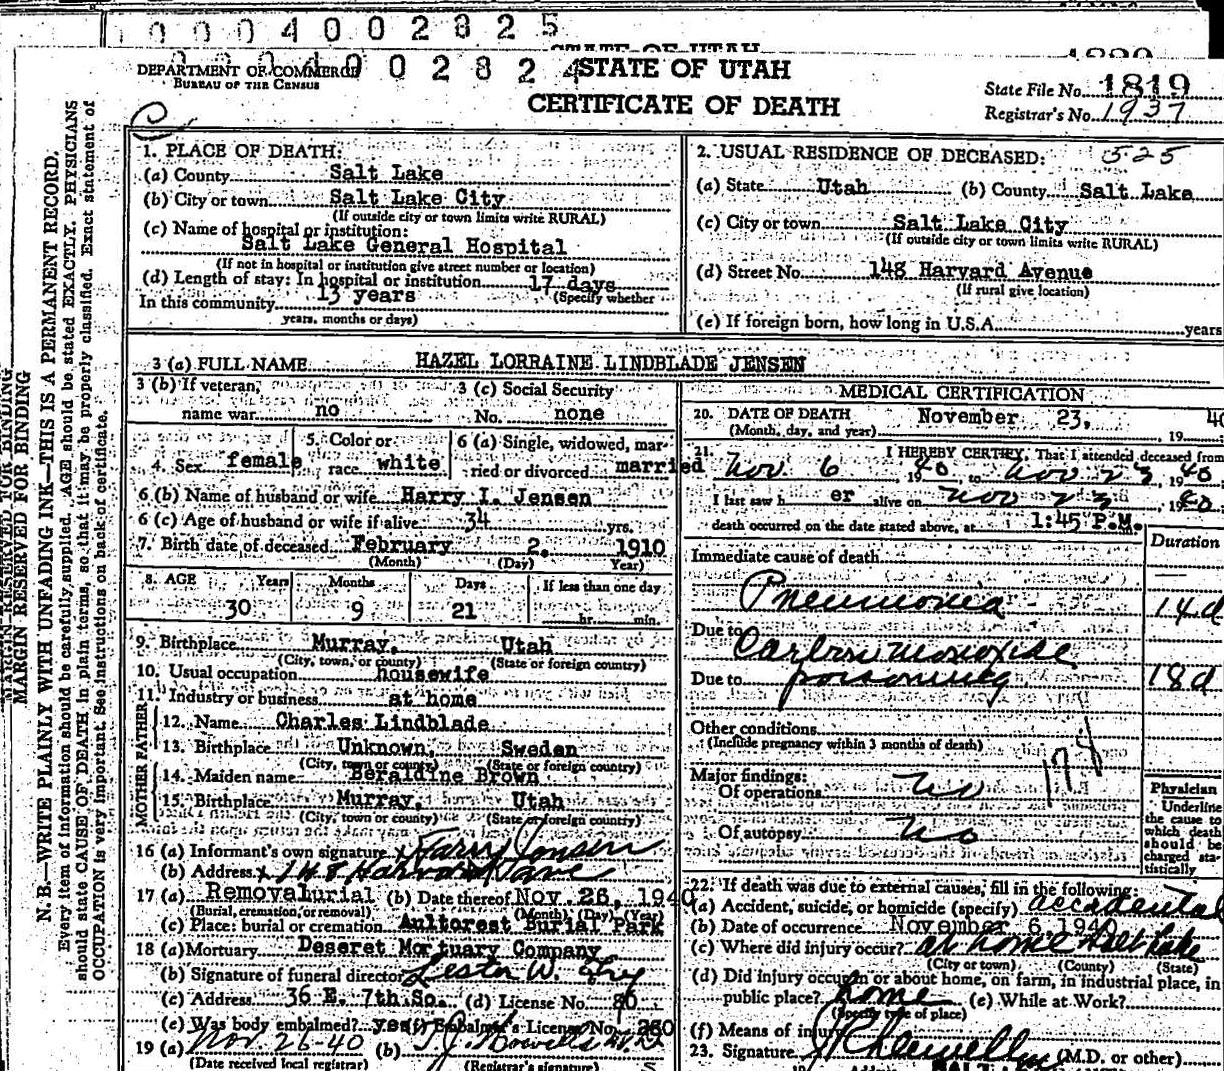 0 0 0 4 0 0 2 8 2 5
STATE OF UTAH
0 0 0 4 0 0 2 8 2 4
DEPARTMENT OF COMMERCE
BUREAU OF THE CENSUS
STATE OF UTAH
CERTIFICATE OF DEATH
State File No. 1819
Registrar's No. 1937
MARGIN RESERVED FOR BINDING
N. B.—WRITE PLAINLY WITH UNFADING INK—THIS IS A PERMANENT RECORD.
Every item of information should be carefully supplied. AGE should be stated EXACTLY. PHYSICIANS
should state CAUSE OF DEATH in plain terms, so that it may be properly classified. Exact statement of
OCCUPATION is very important. See instructions on back of certificate.
1. PLACE OF DEATH:
(a) County Salt Lake
(b) City or town Salt Lake City
(If outside city or town limits write RURAL)
(c) Name of hospital or institution:
Salt Lake General Hospital
(If not in hospital or institution give street number or location)
(d) Length of stay: In hospital or institution 17 days
(Specify whether
In this community 13 years
years, months or days)
2. USUAL RESIDENCE OF DECEASED: 525
(a) State Utah (b) County Salt Lake
(c) City or town Salt Lake City
(If outside city or town limits write RURAL)
(d) Street No. 148 Harvard Avenue
(If rural give location)
(e) If foreign born, how long in U.S.A. years
3 (a) FULL NAME HAZEL LORRAINE LINDBLADE JENSEN
3 (b) If veteran, name war no
3 (c) Social Security No. none
4. Sex female
5. Color or race white
6 (a) Single, widowed, married or divorced married
6 (b) Name of husband or wife Harry I. Jensen
6 (c) Age of husband or wife if alive 34 yrs.
7. Birth date of deceased February 2, 1910
(Month) (Day) (Year)
8. AGE Years Months Days If less than one day
30 9 21 hr. min.
9. Birthplace Murray, Utah
(City, town, or county) (State or foreign country)
10. Usual occupation housewife
11. Industry or business at home
FATHER
12. Name Charles Lindblade
13. Birthplace Unknown, Sweden
(City, town or county) (State or foreign country)
MOTHER
14. Maiden name Beraldine Brown
15. Birthplace Murray, Utah
(City, town or county) (State or foreign country)
16 (a) Informant's own signature x Harry Jensen
(b) Address x 148 Harvard Ave
17 (a) Removalburial (b) Date thereof Nov. 26, 1940
(Burial, cremation, or removal) (Month) (Day) (Year)
(c) Place: burial or cremation Aultorest Burial Park
18 (a) Mortuary Deseret Mortuary Company
(b) Signature of funeral director Lester W.
(c) Address 36 E. 7th So. (d) License No. 80
(e) Was body embalmed? yes (f) Embalmer's License No. 260
19 (a) Nov 26-40 (b)
(Date received local registrar) (Registrar's signature)
MEDICAL CERTIFICATION
20. DATE OF DEATH November 23, 1940
(Month, day, and year)
21. I HEREBY CERTIFY, That I attended deceased from
Nov. 6, 1940, to Nov 23, 1940,
I last saw h er alive on Nov 23, 1940
death occurred on the date stated above, at 1:45 P.M.
Duration
Immediate cause of death
Pneumonia 14d
Due to Carbon monoxide
Due to poisoning 18d
Other conditions
(Include pregnancy within 3 months of death)
Major findings:
Of operations no
Of autopsy no
Physician
Underline the cause to which death should be charged statistically
22. If death was due to external causes, fill in the following:
(a) Accident, suicide, or homicide (specify) accidental
(b) Date of occurrence November 6, 1940
(c) Where did injury occur? at home Salt Lake
(City or town) (County) (State)
(d) Did injury occur in or about home, on farm, in industrial place, in
public place? home (e) While at Work?
(Specify type of place)
(f) Means of injury
23. Signature (M.D. or other)